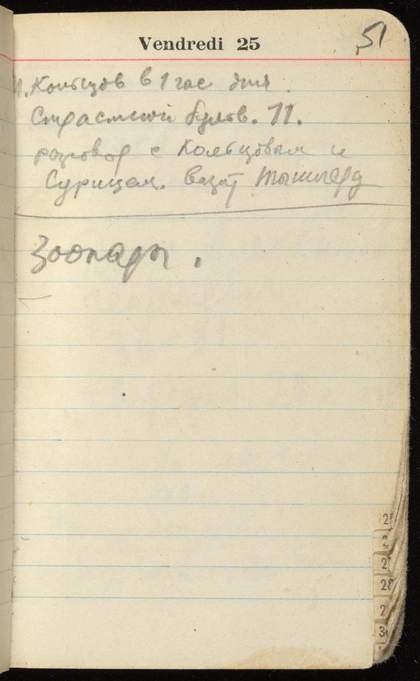 Vendredi 25
51
М. Кольцов в 1 час дня.
Страстной бульв. 11.
разговор с Кольцовым и
Сурицем.
Зоопарк.